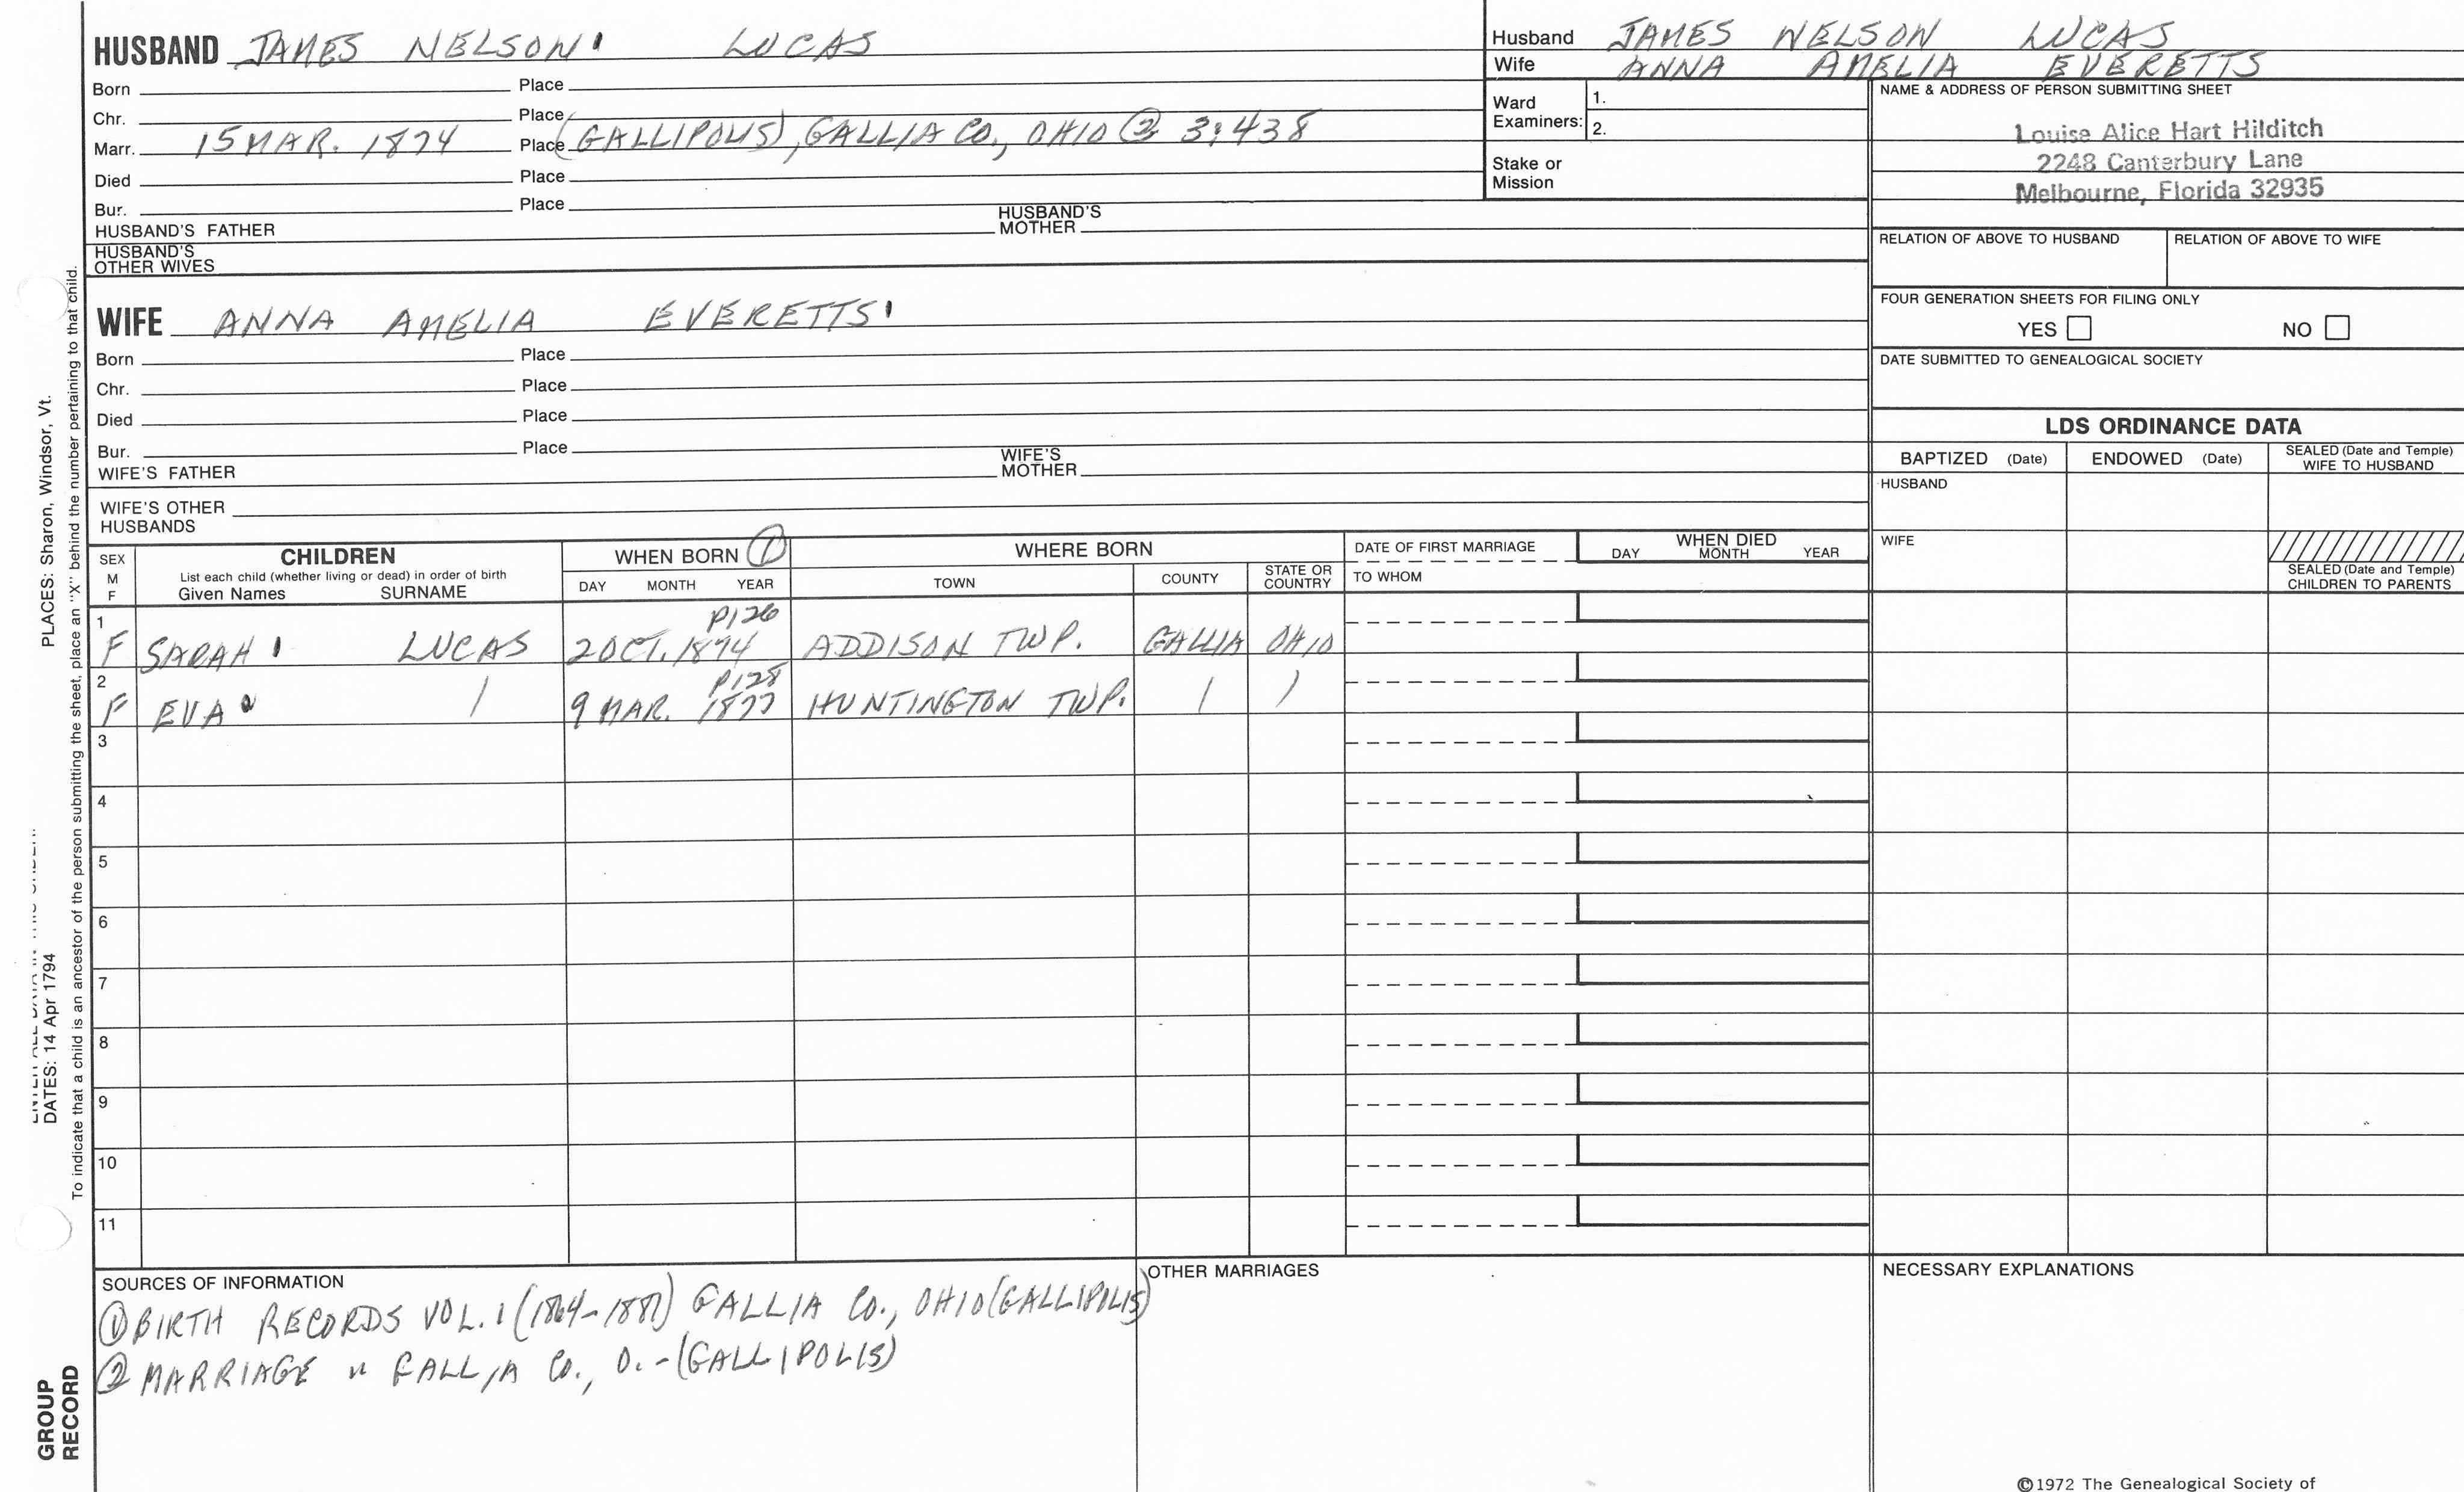 HUSBAND JAMES NELSON' LUCAS
Born Place
Chr. Place
Marr. 15 MAR. 1874 Place (GALLIPOLIS), GALLIA CO., OHIO ② 3:438
Died Place
Bur. Place
HUSBAND'S FATHER HUSBAND'S MOTHER
HUSBAND'S OTHER WIVES
WIFE ANNA AMELIA EVERETTS'
Born Place
Chr. Place
Died Place
Bur. Place
WIFE'S FATHER WIFE'S MOTHER
WIFE'S OTHER HUSBANDS
Husband JAMES NELSON LUCAS
Wife ANNA AMELIA EVERETTS
Ward Examiners: 1.
2.
Stake or Mission
NAME & ADDRESS OF PERSON SUBMITTING SHEET
Louise Alice Hart Hilditch
2248 Canterbury Lane
Melbourne, Florida 32935
RELATION OF ABOVE TO HUSBAND RELATION OF ABOVE TO WIFE
FOUR GENERATION SHEETS FOR FILING ONLY
YES NO
DATE SUBMITTED TO GENEALOGICAL SOCIETY
LDS ORDINANCE DATA
BAPTIZED (Date) ENDOWED (Date) SEALED (Date and Temple) WIFE TO HUSBAND
HUSBAND
WIFE
SEALED (Date and Temple) CHILDREN TO PARENTS
SEX M F
CHILDREN
List each child (whether living or dead) in order of birth
Given Names SURNAME
WHEN BORN ①
DAY MONTH YEAR
WHERE BORN
TOWN COUNTY STATE OR COUNTRY
DATE OF FIRST MARRIAGE
TO WHOM
WHEN DIED
DAY MONTH YEAR
1 P126
F SARAH ' LUCAS 2 OCT. 1874 ADDISON TWP. GALLIA OHIO
2 P128
F EVA / 9 MAR. 1877 HUNTINGTON TWP. / /
3
4
5
6
7
8
9
10
11
SOURCES OF INFORMATION
① BIRTH RECORDS VOL. 1 (1864-1881) GALLIA CO., OHIO (GALLIPOLIS)
② MARRIAGE " GALLIA CO., O. - (GALLIPOLIS)
OTHER MARRIAGES
NECESSARY EXPLANATIONS
©1972 The Genealogical Society of
PLACES: Sharon, Windsor, Vt.
DATES: 14 Apr 1794
To indicate that a child is an ancestor of the person submitting the sheet, place an "X" behind the number pertaining to that child.
GROUP
RECORD